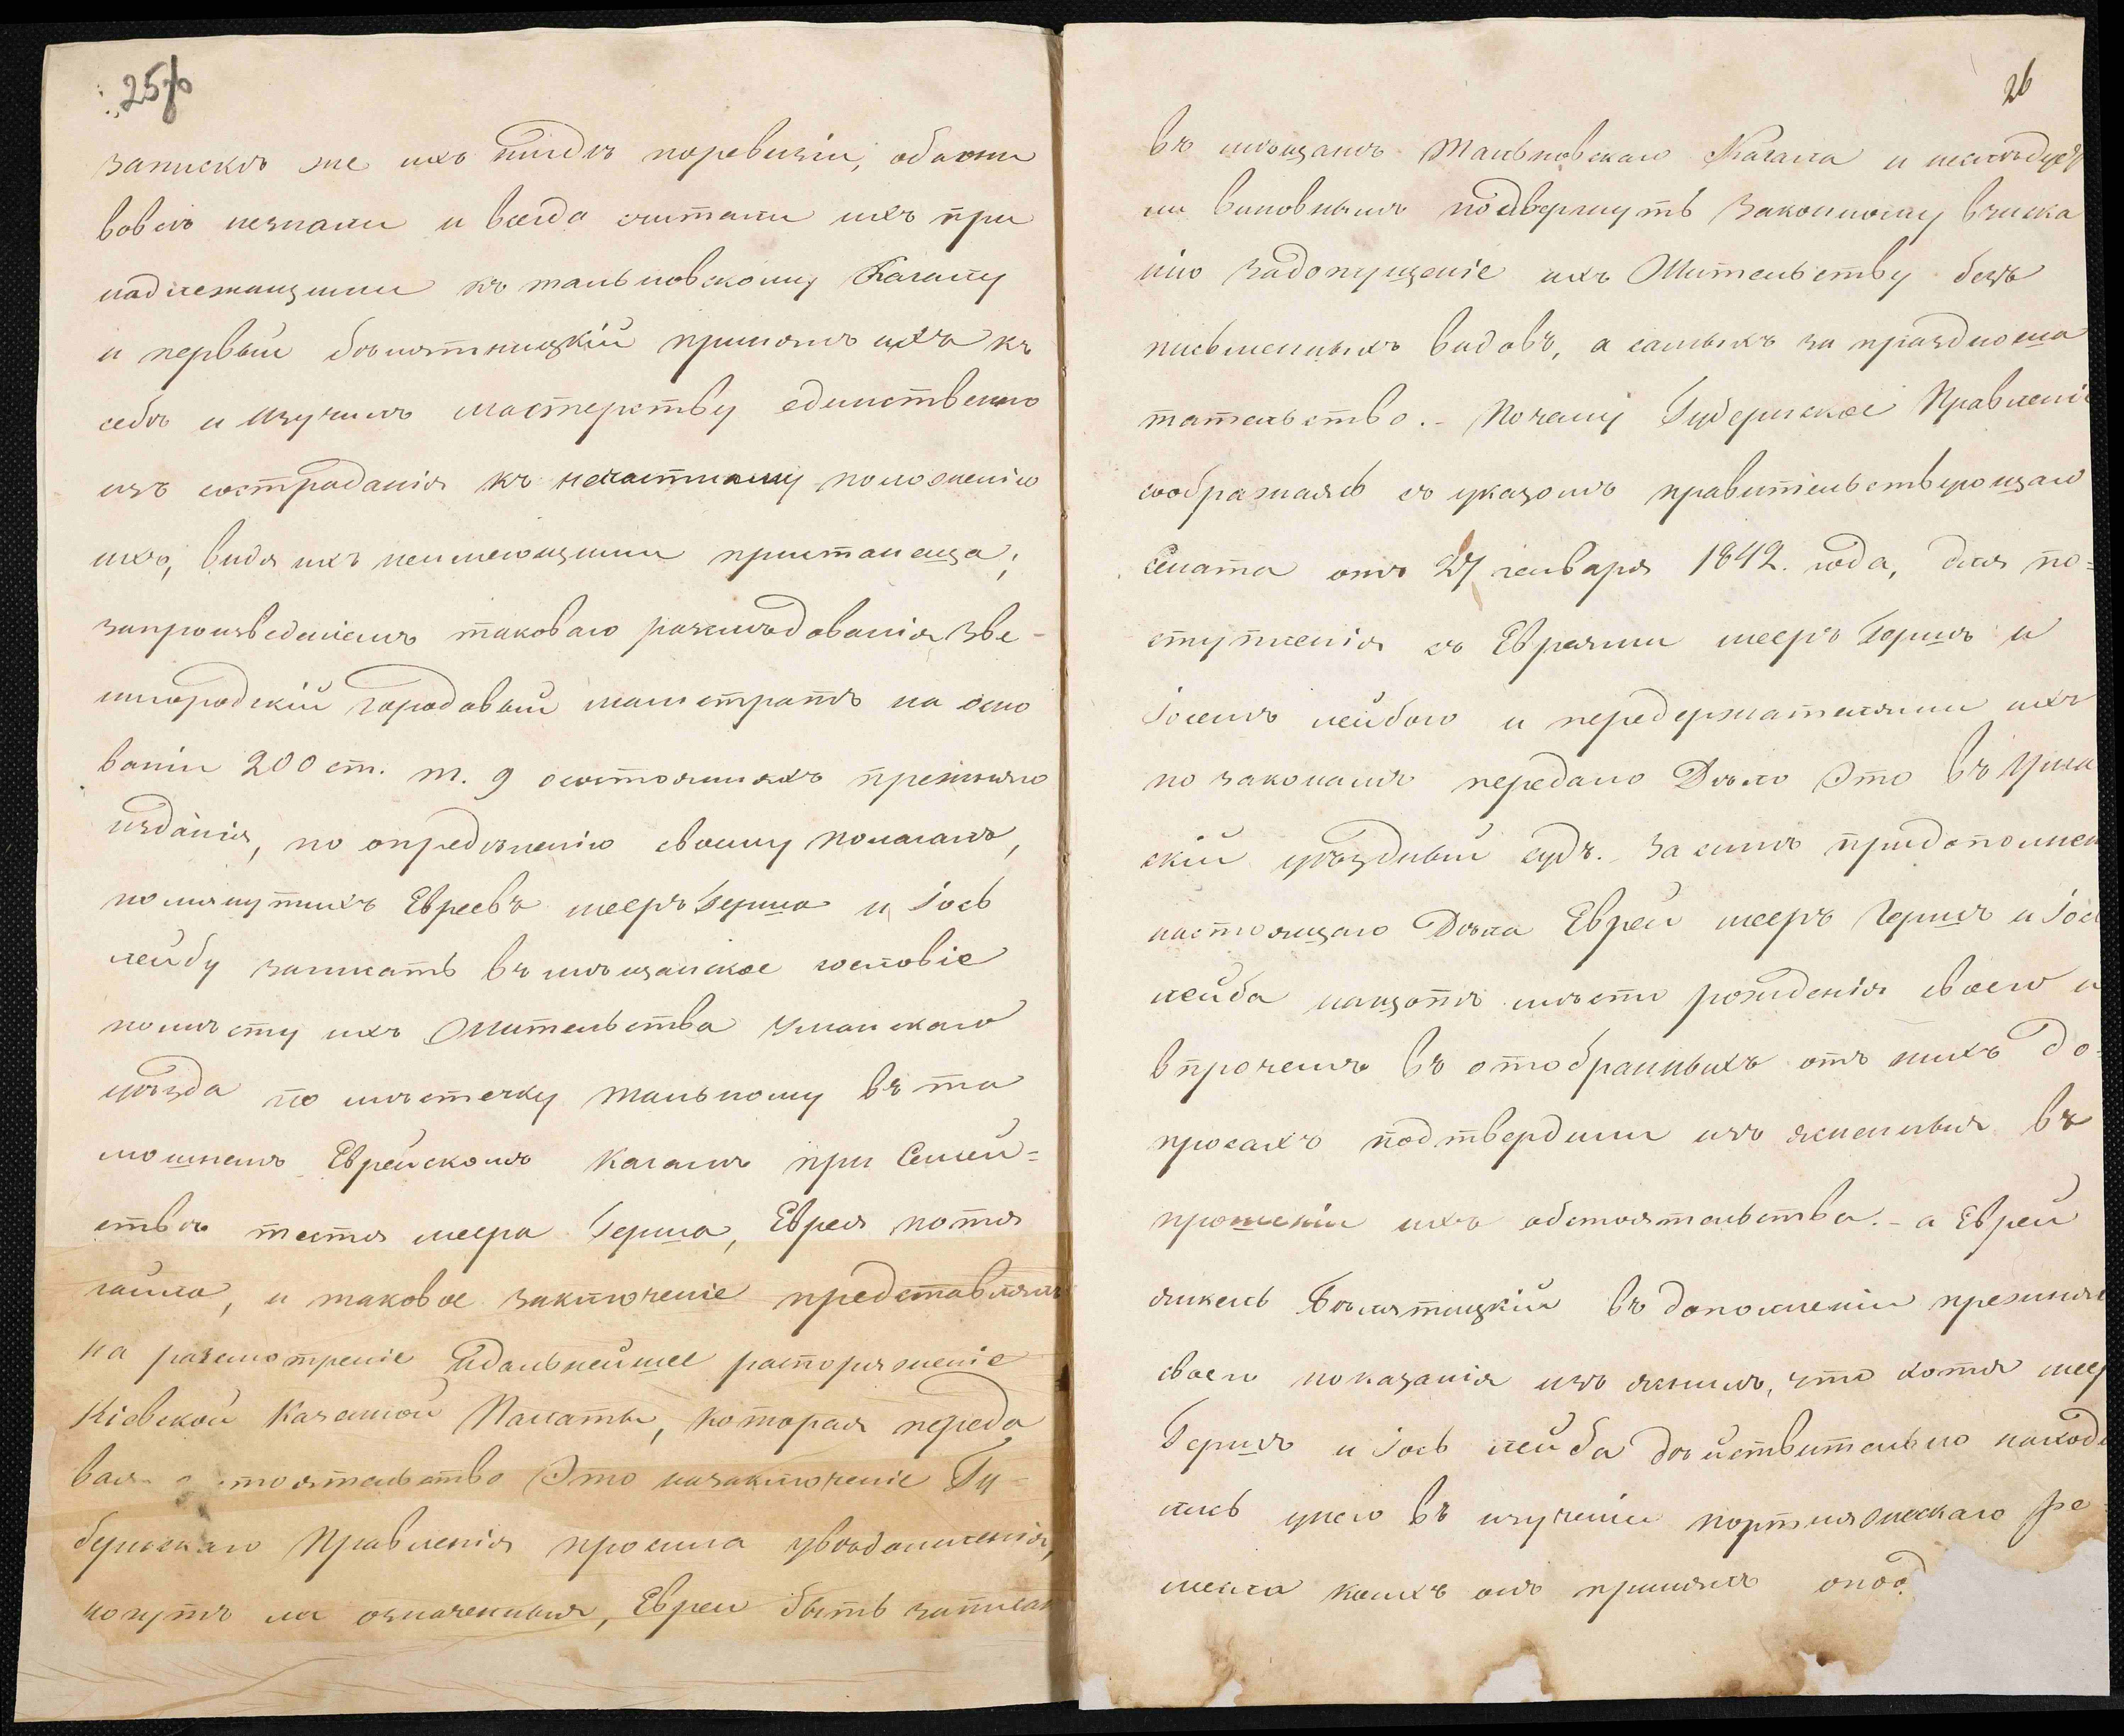 25об
запискѣ же ихъ нигдѣ поревизіи, обаони
вовсѣ незнали и всегда считали ихъ при
надлежащими къ тальновскому Кагалу
и первый бѣлятницкій принялъ ихъ къ
себѣ и изучилъ мастерству единственно
изъ состраданія къ нечастному положенію
ихъ, видя ихъ неимеющими пристанеща;
запроизведеніемъ таковаго разслѣдованія Зве-
нигородскій городовый магистратъ на осно
ваніи 200 ст. т. 9 осостояніяхъ прежняго
изданія, по опредѣленію своему полагалъ,
помянутыхъ Евреевъ меерь Герша и Іось
лейбу записать въ мѣщанское сословіе
помѣсту ихъ Жительства Уманскаго
уѣзда по мѣстечку тальному въ та
мошнемъ Еврейскомъ Кагалѣ при Семей=
ствѣ тестя меера Герша, Еврея потя
гайла, и таковое заключеніе представлялъ
на разсмотреніе идальнейшее распоряженіе
Кіевской Казенной Палаты, которая переда
вая обстоятельство Это назаключеніе Гу=
бернскаго Правленія просила увѣдомленія,
могутъ ли означенныя, Евреи быть записан
26
въ мѣщанъ Тальновскаго Кагала и неслѣдуетъ
ли виновныхъ подвергнуть законному взыска
нію задопущеніе ихъ Жительству безъ
письменныхъ видовъ, а самыхъ за праздноша
тательство.- Почему Губернское Правленіе
сображаясь съ указомъ правительствующаго
Сената отъ 27 генваря 1842. года, для по=
ступленія съ Евреями мееръ Гершѣ и
Іосемъ лейбою и передержателями ихъ
по законамъ передало Дѣло Это въ Уман
скій уѣздный судъ. За симъ придополнен
настоящаго Дѣла Евреи мееръ Гершъ и Іось
лейба нащотъ мѣста рожденія своего и
впрочемъ въ отобранныхъ отъ нихъ до=
просахъ подтвердили изъясненныя въ
прошеніи ихъ обстоятельства.- а Еврей
янкель Бѣлятицкій въ дополненіи прежняго
своего показанія изъяснилъ, что хотя меер
Гершъ и Іось лейба дѣйствительно находи
лись унего въ изученіи портняжескаго ре=
месла коихъ онъ принялъ